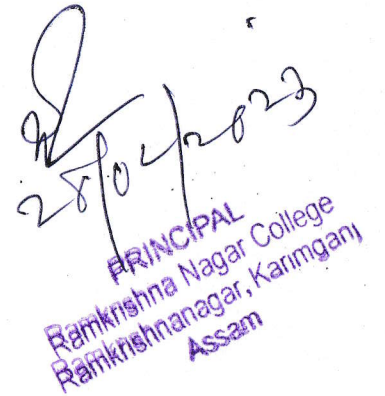 28/02/2023
PRINCIPAL
Ramkrishna Nagar College
Ramkrishnanagar, Karimganj
Assam